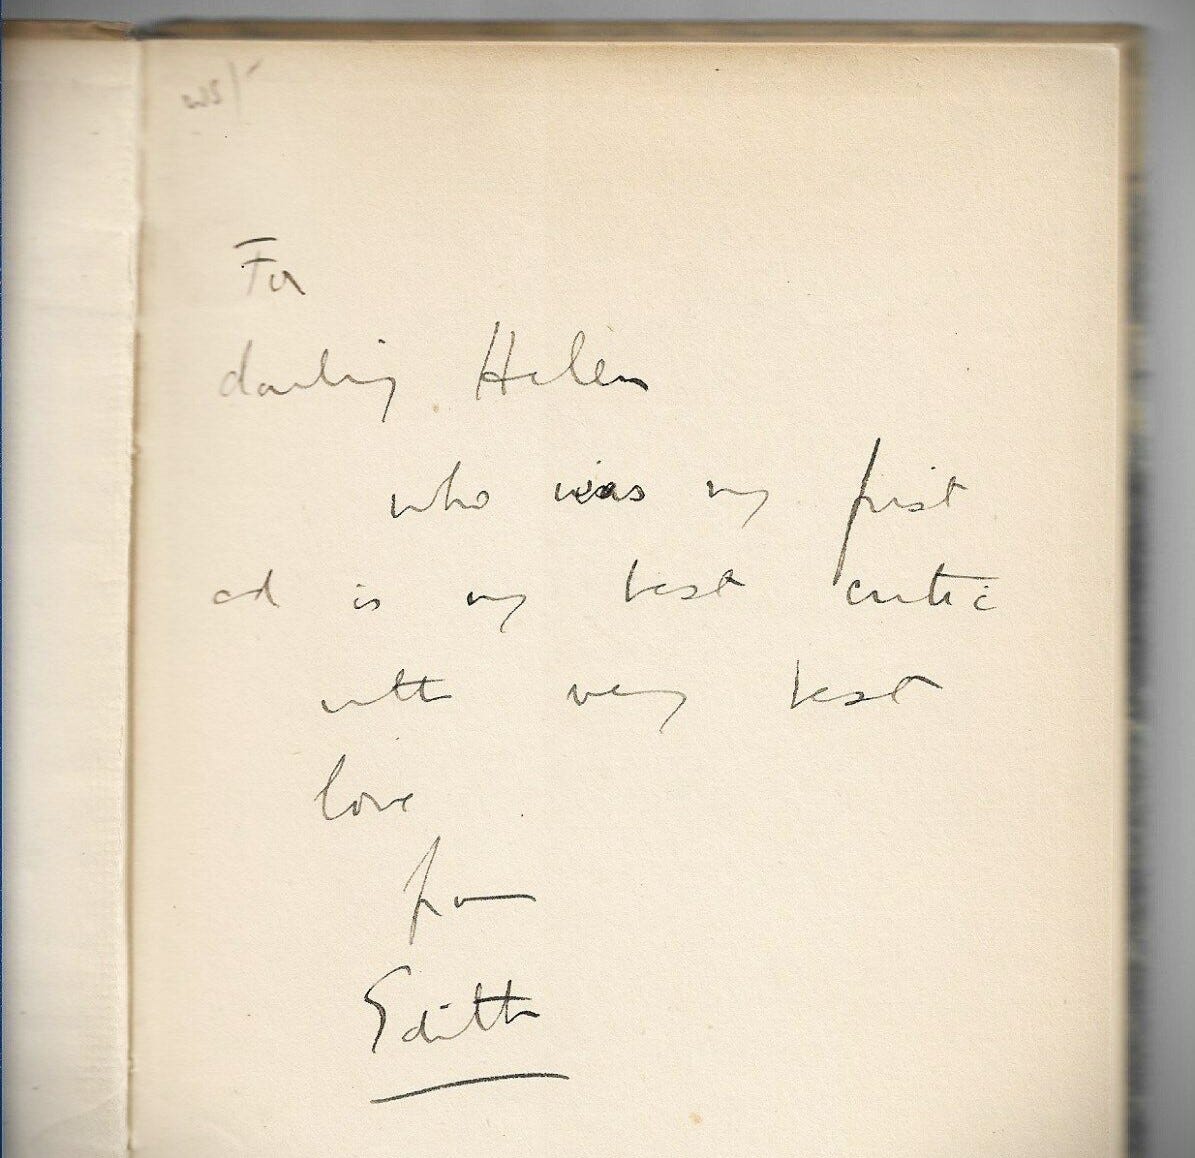 For
darling Helen
who was my first
and is my best critic
with very best
love
from
Edith